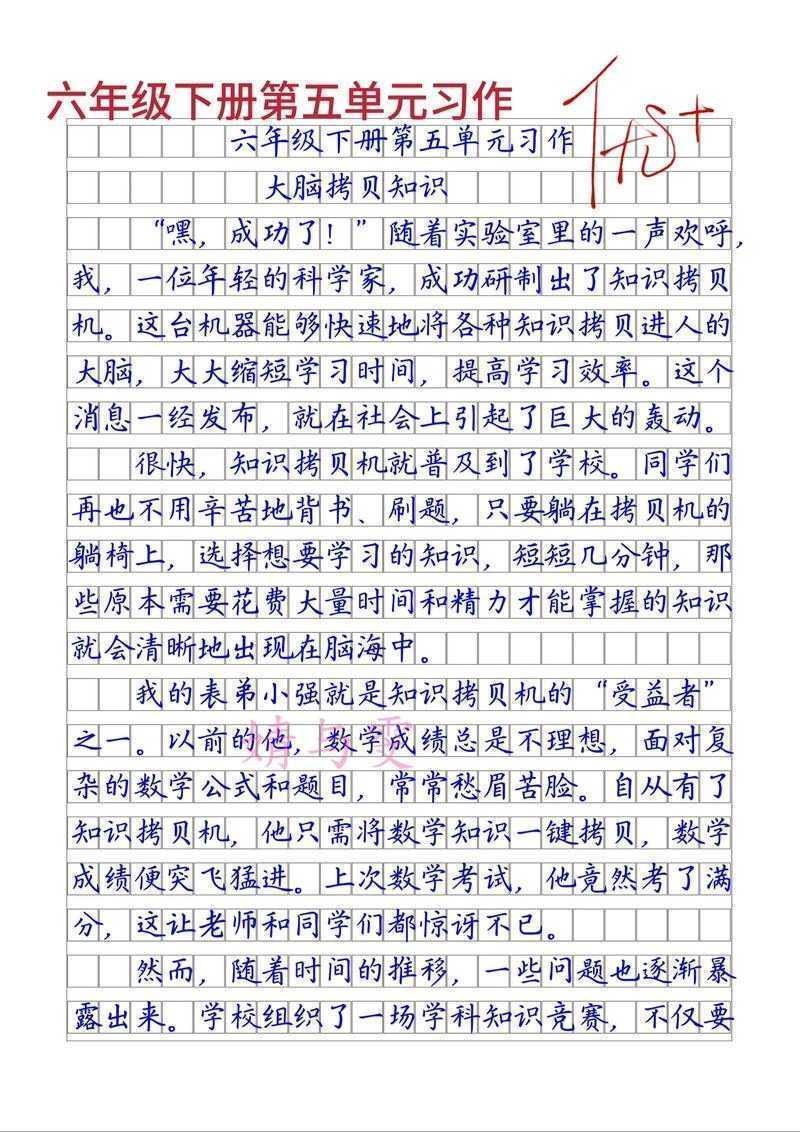 六年级下册第五单元习作
优+
六年级下册第五单元习作
大脑拷贝知识
“嘿，成功了！”随着实验室里的一声欢呼，
我，一位年轻的科学家，成功研制出了知识拷贝
机。这台机器能够快速地将各种知识拷贝进人的
大脑，大大缩短学习时间，提高学习效率。这个
消息一经发布，就在社会上引起了巨大的轰动。
很快，知识拷贝机就普及到了学校。同学们
再也不用辛苦地背书、刷题，只要躺在拷贝机的
躺椅上，选择想要学习的知识，短短几分钟，那
些原本需要花费大量时间和精力才能掌握的知识
就会清晰地出现在脑海中。
我的表弟小强就是知识拷贝机的“受益者”
之一。以前的他，数学成绩总是不理想，面对复
杂的数学公式和题目，常常愁眉苦脸。自从有了
知识拷贝机，他只需将数学知识一键拷贝，数学
成绩便突飞猛进。上次数学考试，他竟然考了满
分，这让老师和同学们都惊讶不已。
然而，随着时间的推移，一些问题也逐渐暴
露出来。学校组织了一场学科知识竞赛，不仅要
婧与雯